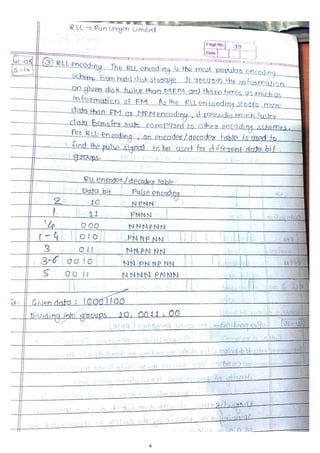 RLL → Run Length Limited
Page No. 39
Date
W-08
S-10
③ RLL encoding. The RLL encoding is the most popular encoding
scheme from hard disk storage. It records the information
on given disk twice than MFM and three times, as much as
information of FM. As the RLL encoding stores more
data than FM or MFM encoding, it provides much faster
data transfer rate compared to other encoding schemes.
For RLL encoding, an encoder/decoder table is used to
find the pulse signal to be used for different data bit
groups.
RLL encoder/decoder table
Data bit Pulse encoding
2 10 NPNN
1 11 PNNN
4 000 NNNPNN
1-4 010 PNNPNN
3 011 NNPNNN
3-6 0010 NNPNNPNN
5 0011 NNNNPNNN
Given data : 10001100
Dividing into groups 10, 0011, 00
4